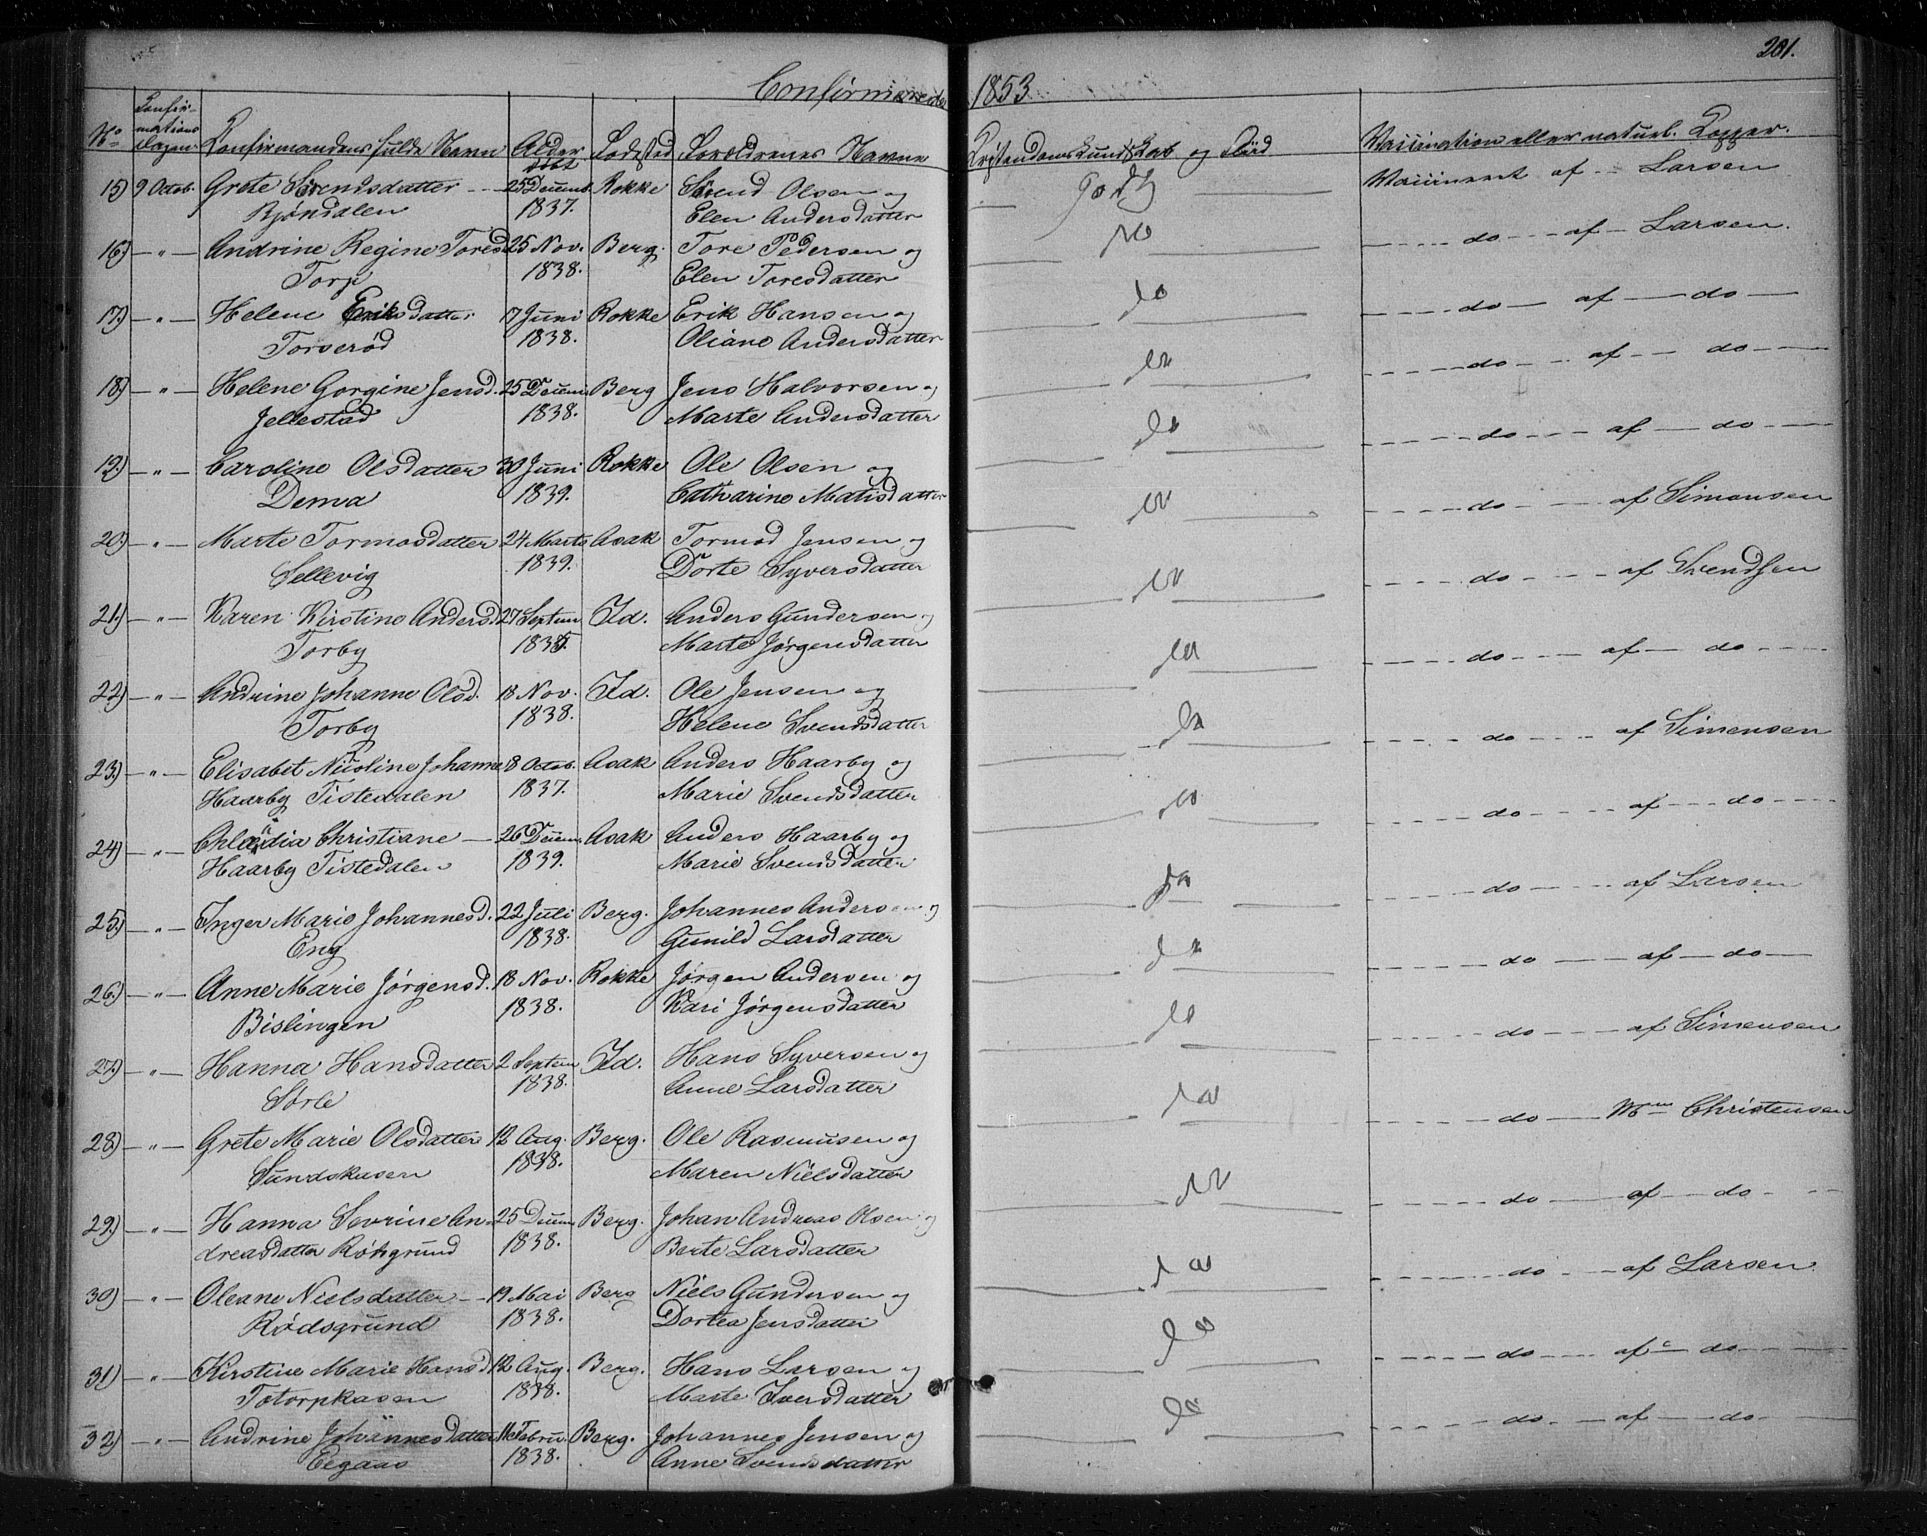 201.
Confirmerede 1853
No Confirmations Dagen Konfirmandens fulde Navn Alder Födested Forældrenes Navne Kristendoms Kundskab og Flid Vaccination eller naturl. Kopper.
15) 9 Octob. Grete Svendsdatter 25 Decemb. Rokke Svend Olsen og godt Vaccineret af Larsen
Bjöndalen 1837. Elen Andersdatter
16) " Andrine Regine Toresd 25 Nov. Berg. Tore Pedersen og do do af Larsen.
Torp 1838. Elen Toresdatter
17) " Helene Eriksdatter 17 Juni Rokke Erik Hansen og do do af do
Torverød 1838. Oliane Andersdatter
18) " Helene Gorgine Jensd. 25 Decem Berg Jens Halvorsen og do do af do
Jellestad 1838. Marte Andersdatter
19.) " Caroline Olsdatter 30 Juni Rokke Ole Olsen og do do af do
Dema 1839. Catharine Matisdatter
20) " Marte Tormosdatter 24 Marts Asak Tormod Jensen og do do af Simonsen
Sellevig 1839. Dorte Syversdatter
21.) " Karen Kirstine Andersd 27 Septem Id. Anders Gundersen og do do af Svendsen
Torby Marte Jørgensdatter
22) " Andrine Johanne Olsd. 18 Nov. Id. Ole Jensen og do do af do
Torby 1838. Helene Svendsdatter
23) " Elisabet Nicoline Johanne 8 Octob. Asak Anders Haarby og do do af Simensen
Haarby Tistedalen 1837. Marie Svendsdatter
24) " Christiane 26 Decem. Asak Anders Haarby og do do af do
Haarby Tistedalen 1839. Marie Svendsdatter
25) " Inger Marie Johannesd. 22 Juli Berg. Johannes Andersen og do do af Larsen
Eng 1838. Gunild Larsdatter
26.) " Anne Marie Jörgensd. 18 Nov. Rokke Jørgen Andersen og do do af do
Bislingen 1838. Kari Jørgensdatter
27) " Hanna Hansdatter 2 Septem Id. Hans Syversen og do do af Simensen
Sørle 1838. Anne Larsdatter
28) " Grete Marie Olsdatter 12 Aug. Berg. Ole Rasmusen og do do Christensen
Sundskasen 1838. Maren Nielsdatter
29.) " Hanna Sevrine An- 25 Decem Berg. Johan Andreas Olsen og do do af do
dreasdatter 1838. Berte Larsdatter
30) " Oleane Nielsdatter 19 Mai Berg Niels Gundersen og do do af Larsen
Rødsgrund 1838. Dortea Jensdatter
31) " Kirstine Marie Hansd 12 Aug. Berg. Hans Larsen og do do af do
Totorpkasen 1838. Marte Iversdatter
32) " Andrine Johannesdatter 11 Febru. Berg. Johannes Jensen og do do af do
Eegaas 1838. Anne Svendsdatter